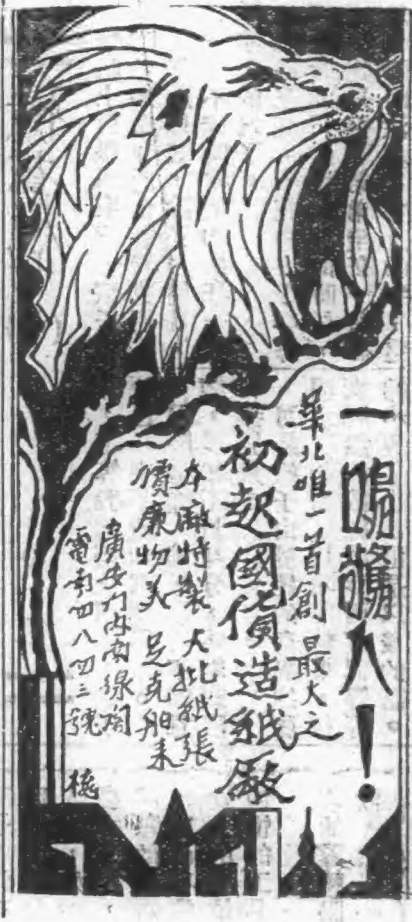 一鳴驚人！
華北唯一首創最大之
初起國貨造紙廠
本廠特製 大批紙張
價廉物美 足克舶来
廣安门内南綫閣
電南四八四三號